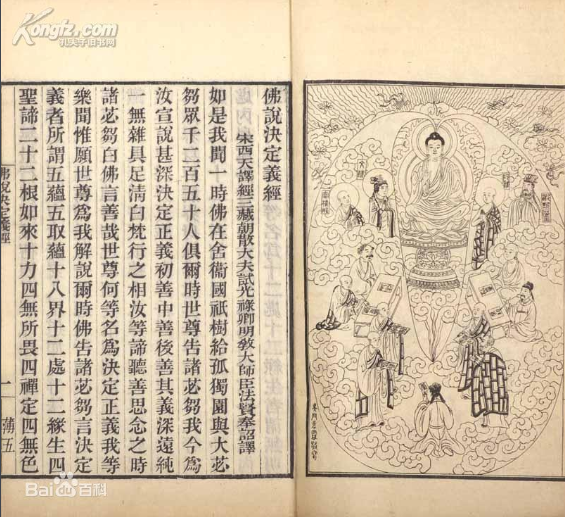 Kongfz.com
孔夫子旧书网
佛說決定義經
宋西天譯經三藏朝散大夫試光祿卿明教大師臣法賢奉詔譯
如是我聞一時佛在舍衛國祇樹給孤獨園與大苾
芻眾千二百五十人俱爾時世尊告諸苾芻我今為
汝宣說甚深決定正義初善中善後善其義深遠純
一無雜具足清白梵行之相汝等諦聽善思念之時
諸苾芻白佛言善哉世尊何等名為決定正義我等
樂聞惟願世尊為我解說爾時佛告諸苾芻言決定
義者所謂五蘊五取蘊十八界十二處十二緣生四
聖諦二十二根如來十力四無所畏四禪定四無色
佛說決定義經 二 蒲五
Bai百科